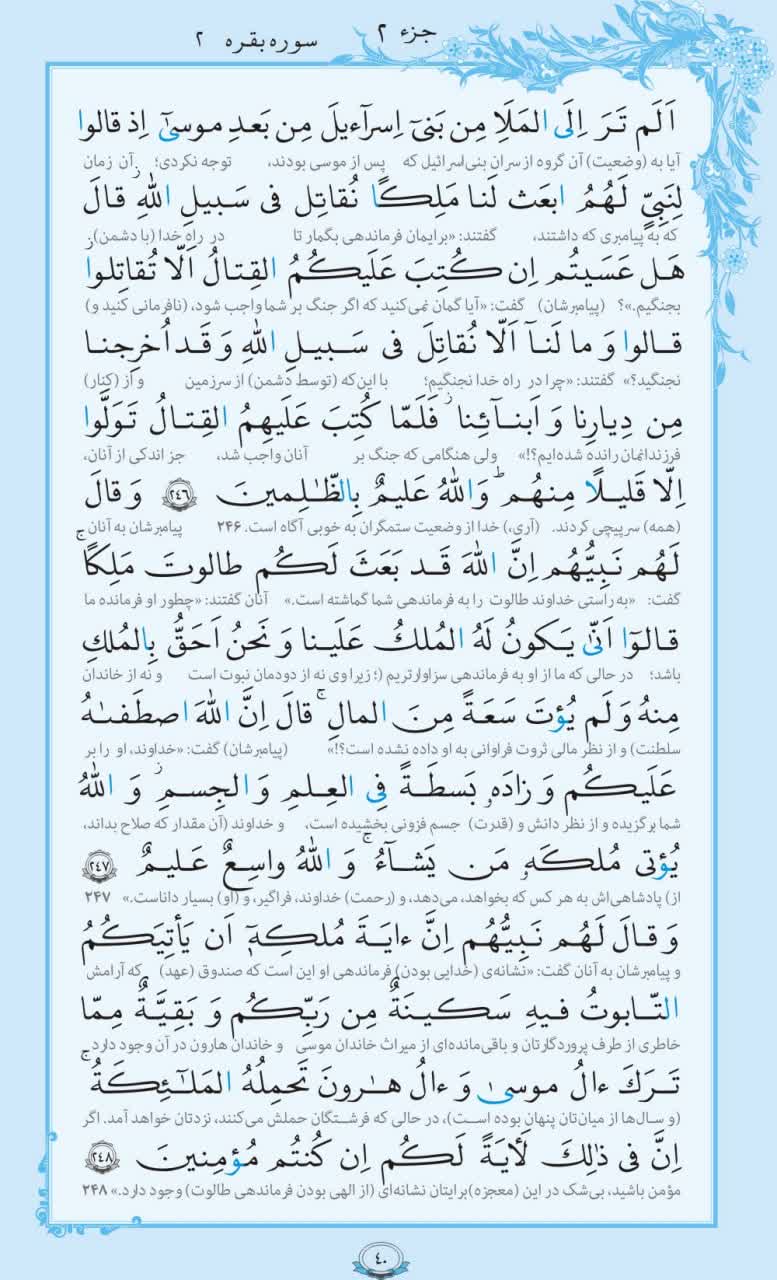 جزء ۲
سوره بقره ۲
اَلَم تَرَ اِلَى المَلَاِ مِن بَنىٓ اِسرآءيلَ مِن بَعدِ موسىٰٓ اِذ قالوا
آیا به (وضعیت) آن گروه از سران بنی‌اسرائیل که پس از موسی بودند، توجه نکردی؛ آن زمان
لِنَبِىٍّ لَهُمُ ابعَث لَنا مَلِكًا نُقاتِل فى سَبيلِ اللهِ ۖ قالَ
که به پیامبری که داشتند، گفتند: «برایمان فرماندهی بگمار تا در راه خدا (با دشمن)
هَل عَسَيتُم اِن كُتِبَ عَلَيكُمُ القِتالُ اَلّا تُقاتِلوا ۖ
بجنگیم.»؟ (پیامبرشان) گفت: «آیا گمان نمی‌کنید که اگر جنگ بر شما واجب شود، (نافرمانی کنید و)
قالوا وَ ما لَنآ اَلّا نُقاتِلَ فى سَبيلِ اللهِ وَ قَد اُخرِجنا
نجنگید؟» گفتند: «چرا در راه خدا نجنگیم؛ با این‌که (توسط دشمن) از سرزمین و از (کنار)
مِن دِيارِنا وَ اَبنآئِنا ۖ فَلَمّا كُتِبَ عَلَيهِمُ القِتالُ تَوَلَّوا
فرزندانمان رانده شده‌ایم؟!» ولی هنگامی که جنگ بر آنان واجب شد، جز اندکی از آنان،
اِلّا قَليلًا مِنهُم ۗ وَاللهُ عَليمٌ بِالظّٰالِمينَ ﴿٢٤٦﴾ وَ قالَ
(همه) سرپیچی کردند. (آری،) خدا از وضعیت ستمگران به خوبی آگاه است. ۲۴۶ پیامبرشان به آنان
لَهُم نَبِيُّهُم اِنَّ اللهَ قَد بَعَثَ لَكُم طالوتَ مَلِكًا ۚ
گفت: «به راستی خداوند طالوت را به فرماندهی شما گماشته است.» آنان گفتند: «چطور او فرمانده ما
قالوٓا اَنّىٰ يَكونُ لَهُ المُلكُ عَلَينا وَ نَحنُ اَحَقُّ بِالمُلكِ
باشد؛ در حالی که ما از او به فرماندهی سزاوارتریم (؛ زیرا وی نه از دودمان نبوت است و نه از خاندان
مِنهُ وَ لَم يُؤتَ سَعَةً مِنَ المالِ ۚ قالَ اِنَّ اللهَ اصطَفىٰهُ
سلطنت) و از نظر مالی ثروت فراوانی به او داده نشده است؟!» (پیامبرشان) گفت: «خداوند، او را بر
عَلَيكُم وَ زادَهٗ بَسطَةً فِى العِلمِ وَ الجِسمِ ۖ وَ اللهُ
شما برگزیده و از نظر دانش و (قدرت) جسم فزونی بخشیده است، و خداوند (آن مقدار که صلاح بداند،
يُؤتى مُلكَهٗ مَن يَشآءُ ۚ وَ اللهُ واسِعٌ عَليمٌ ﴿٢٤٧﴾
از) پادشاهی‌اش به هر کس که بخواهد، می‌دهد، و (رحمت) خداوند، فراگیر، و (او) بسیار داناست.» ۲۴۷
وَ قالَ لَهُم نَبِيُّهُم اِنَّ ءايَةَ مُلكِهٖٓ اَن يَأتِيَكُمُ
و پیامبرشان به آنان گفت: «نشانه‌ی (خدایی بودن) فرماندهی او این است که صندوق (عهد) که آرامش
التّابوتُ فيهِ سَكينَةٌ مِن رَبِّكُم وَ بَقِيَّةٌ مِمّا
خاطری از طرف پروردگارتان و باقی‌مانده‌ای از میراث خاندان موسی و خاندان هارون در آن وجود دارد
تَرَكَ ءالُ موسىٰ وَ ءالُ هٰرونَ تَحمِلُهُ المَلٰٓئِكَةُ ۚ
(و سال‌ها از میان‌تان پنهان بوده است)، در حالی که فرشتگان حملش می‌کنند، نزدتان خواهد آمد. اگر
اِنَّ فى ذٰلِكَ لَأيَةً لَكُم اِن كُنتُم مُؤمِنينَ ﴿٢٤٨﴾
مؤمن باشید، بی‌شک در این (معجزه) برایتان نشانه‌ای (از الهی بودن فرماندهی طالوت) وجود دارد.» ۲۴۸
٤٠